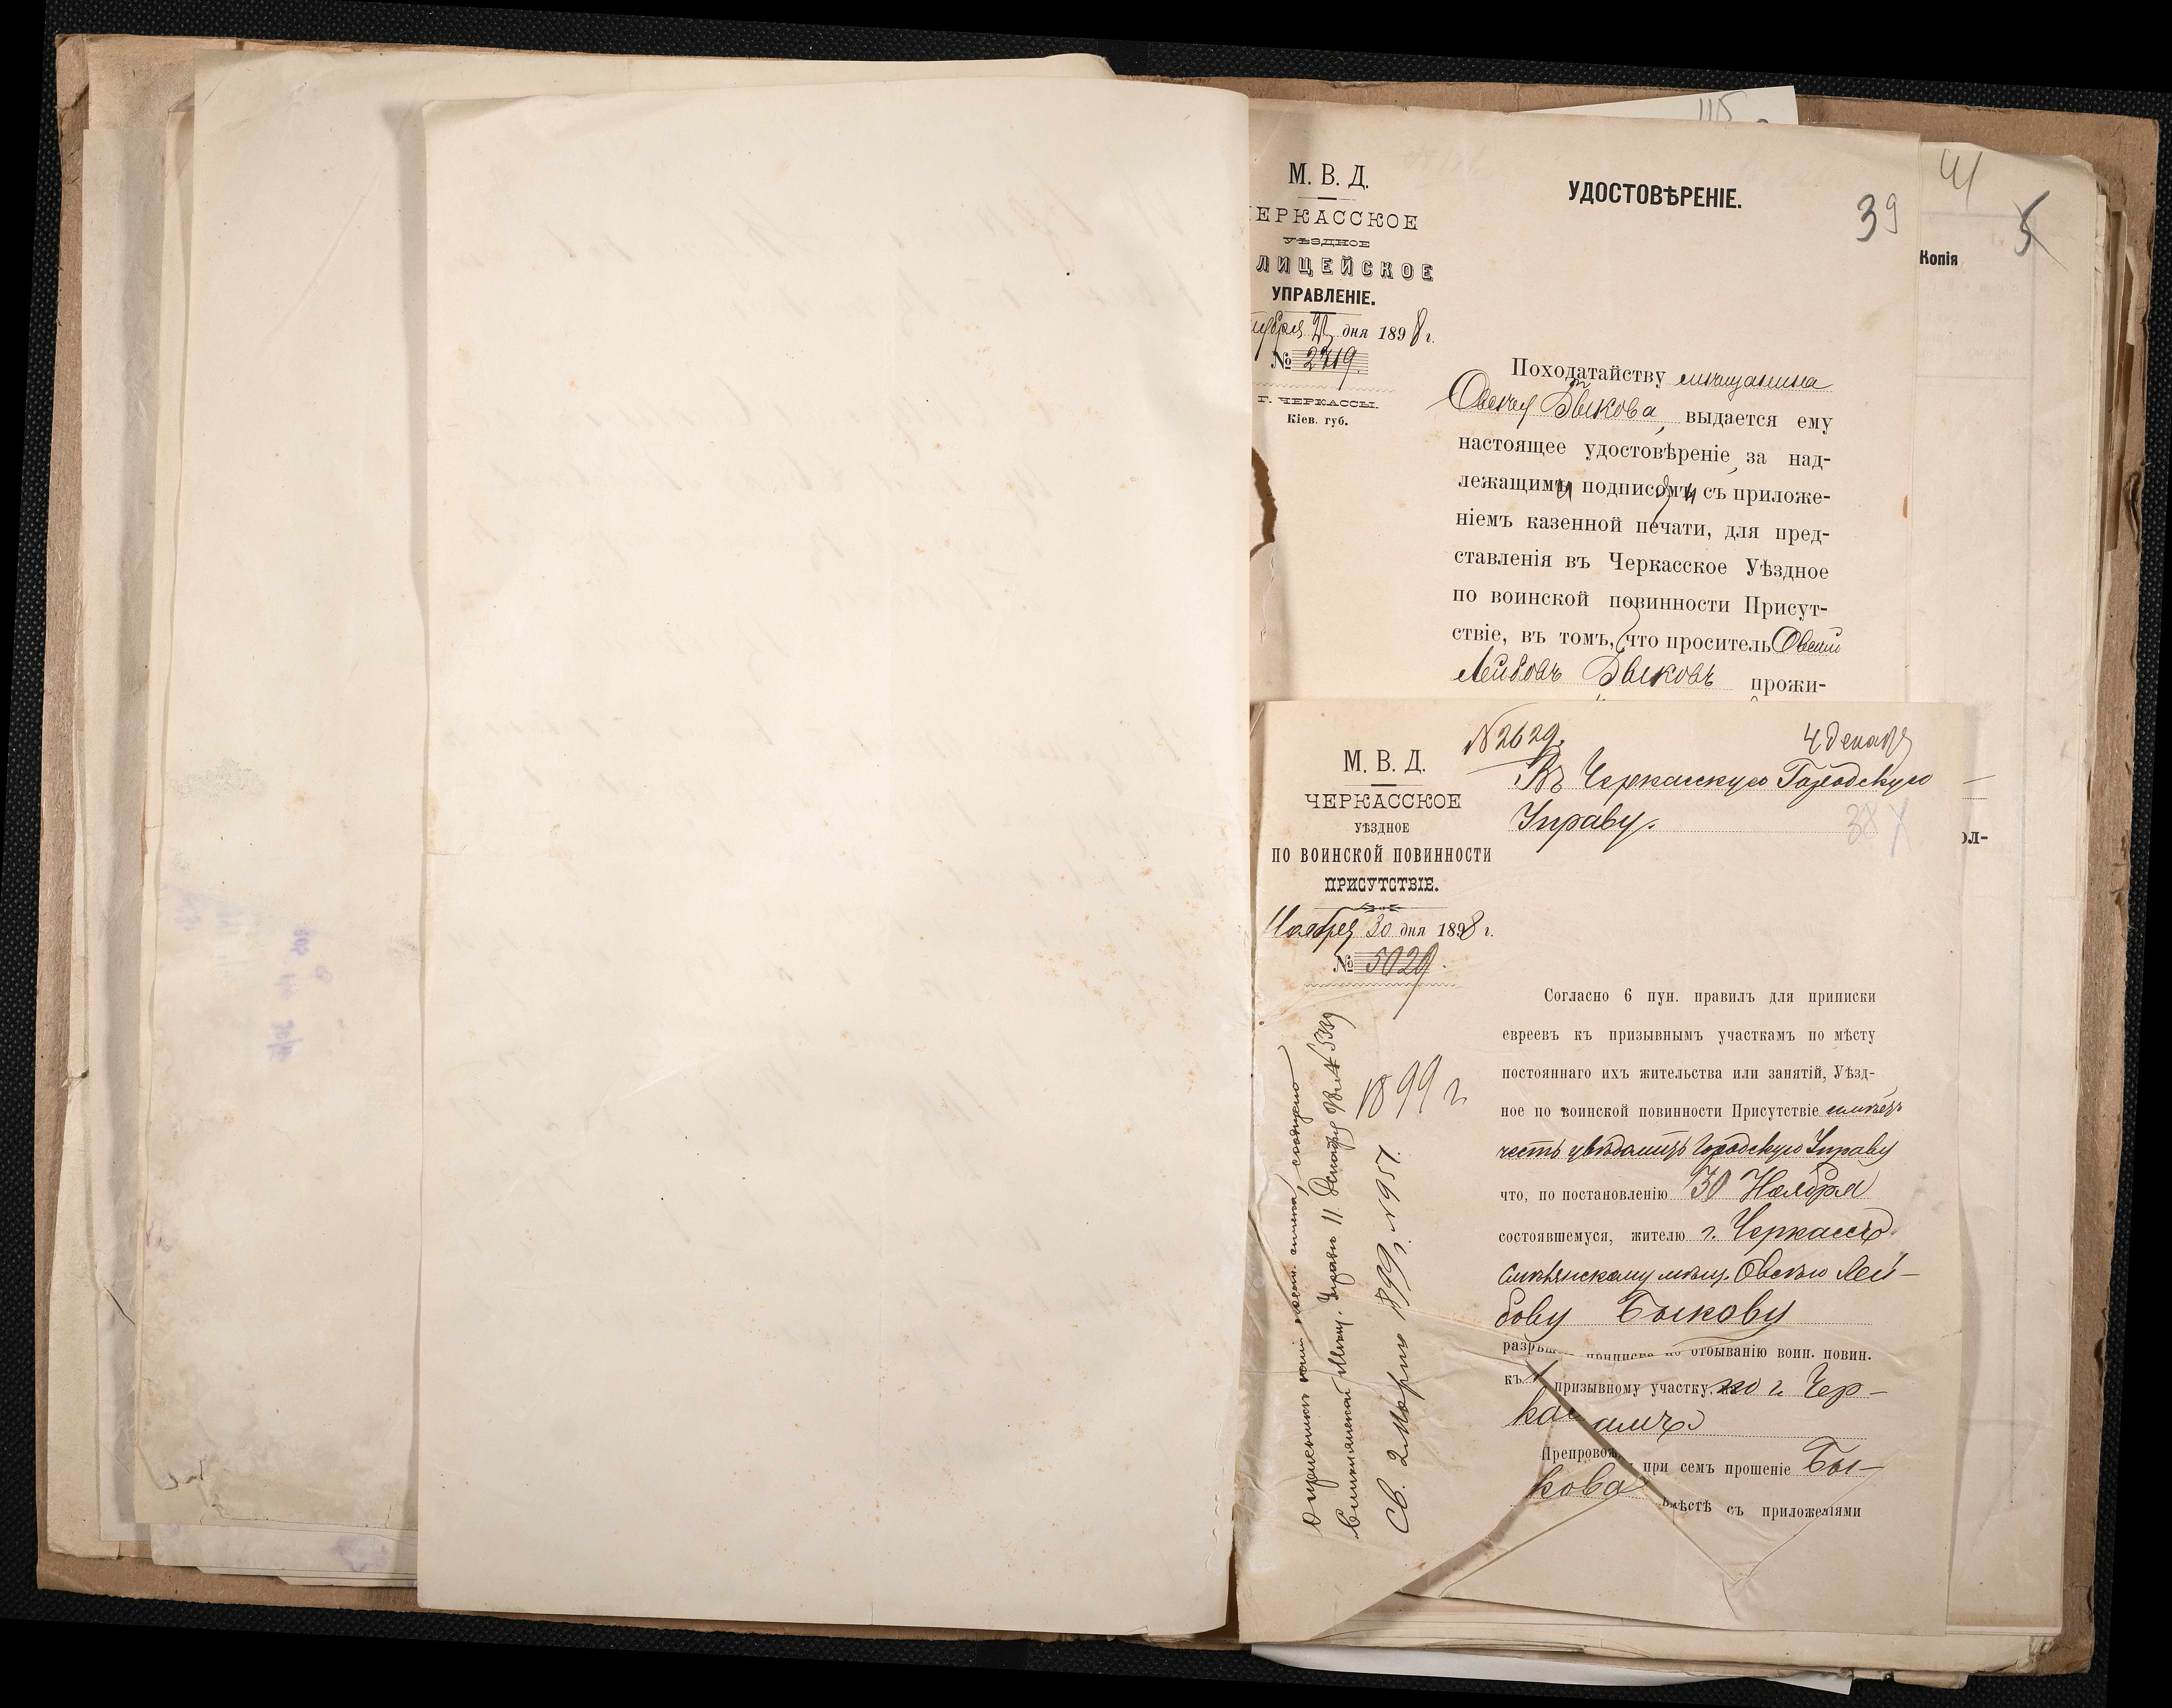 115
41
5
Копія
М. В. Д.
ЕРКАССКОЕ
УѢЗДНОЕ
ЛИЦЕЙСКОЕ
УПРАВЛЕНІЕ.
дня 1898 г.
№ 2719.
Г. ЧЕРКАССЫ.
Кіев. губ.
УДОСТОВѢРЕНІЕ.
39
Походатайству мѣщанина
Овсея Быкова, выдается ему
настоящее удостовѣреніе, за над-
лежащимъ подписомъ, съ приложе-
ніемъ казенной печати, для пред-
ставленія въ Черкасское Уѣздное
по воинской повинности Присут-
ствіе, въ томъ, что проситель Овсей
Лейбовъ Быковъ прожи-
М. В. Д.
ЧЕРКАССКОЕ
УѢЗДНОЕ
ПО ВОИНСКОЙ ПОВИННОСТИ
ПРИСУТСТВІЕ.
Ноября 30 дня 1898 г.
№ 5029.
№ 2629.
4 декабря
Въ Черкасскую Городскую
Управу.
38
ол-
Согласно 6 пун. правилъ для приписки
евреевъ къ призывнымъ участкамъ по мѣсту
постояннаго ихъ жительства или занятій, Уѣзд-
ное по воинской повинности Присутствіе имѣетъ
честь увѣдомить Городскую Управу
что, по постановленію 30 Ноября
состоявшемуся, жителю г. Черкассъ
Смѣлянскому мѣщ. Овсею Лей-
бову Быкову
разрѣш приписка по отбыванію воин. повин.
къ 1 призывному участку, по г. Чер-
кассамъ
Препровож при семъ прошеніе Бы-
кова вмѣстѣ съ приложеніями
сообщено
Мѣщ. Управѣ 11 Декабря 98 г. № 5339
1899 г.
Св. 2 Марта 1899 г. № 1951